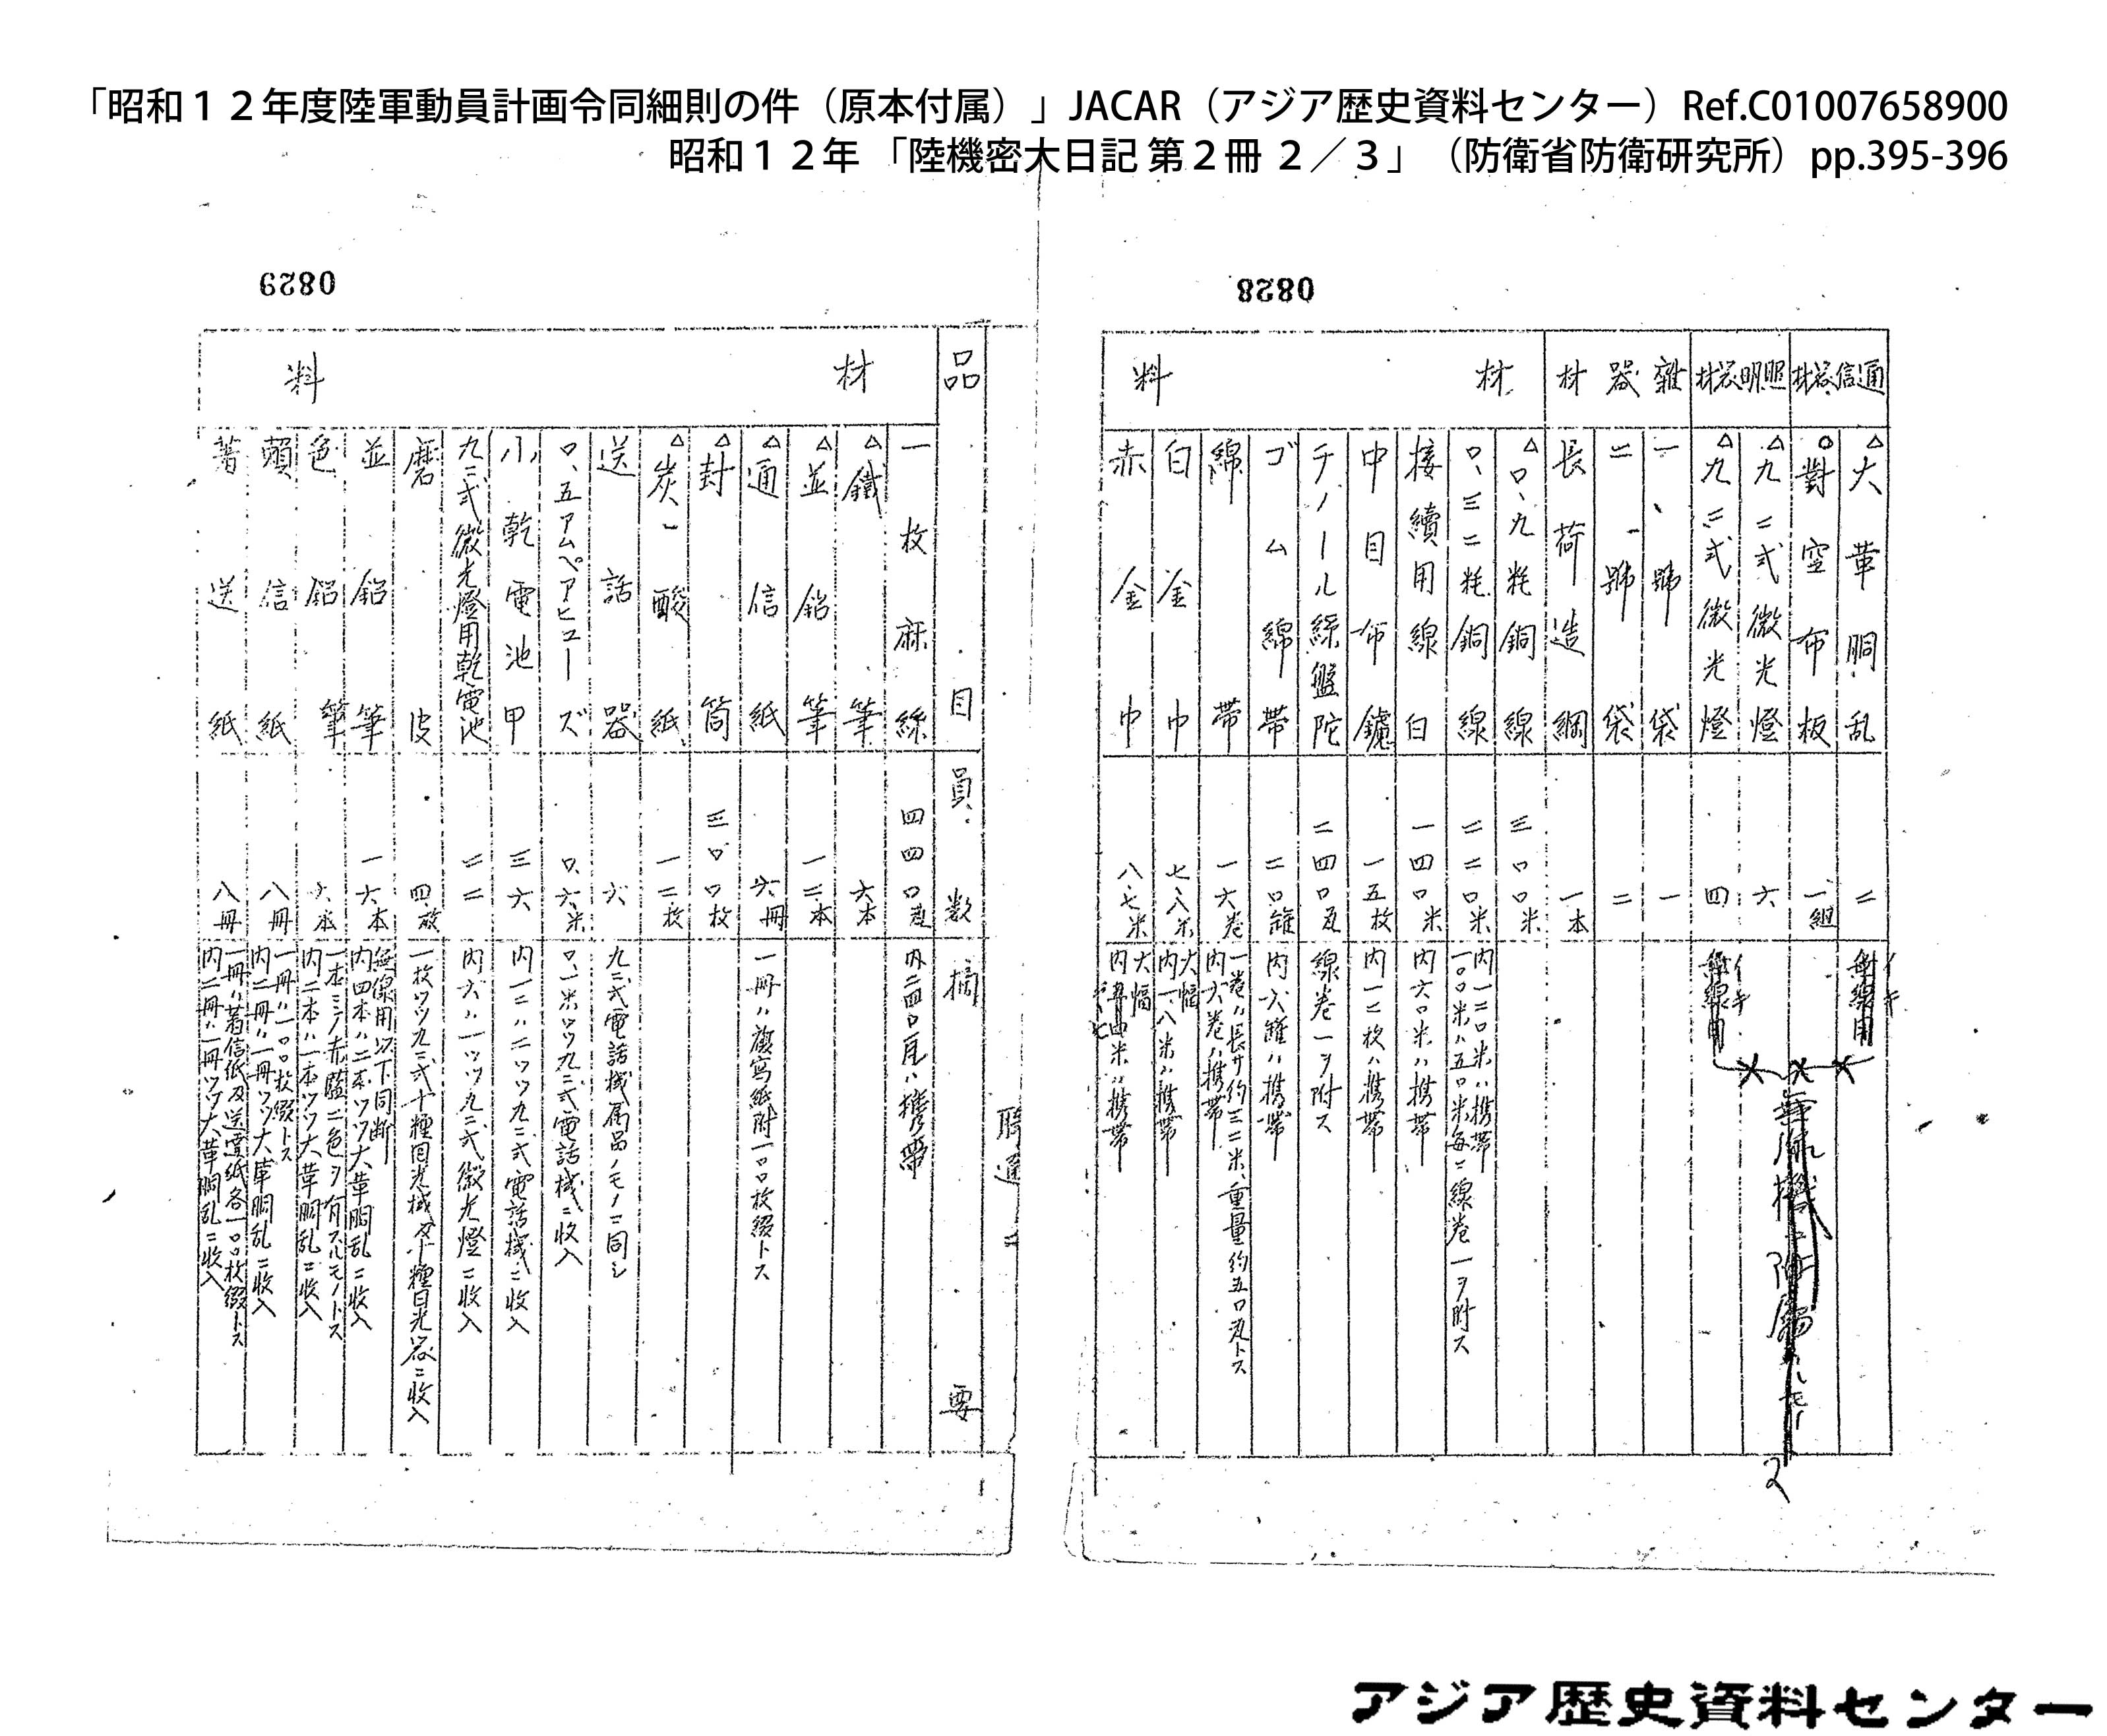 「昭和１２年度陸軍動員計画令同細則の件（原本付属）」JACAR（アジア歴史資料センター）Ref.C01007658900
昭和１２年「陸機密大日記 第２冊 ２／３」（防衛省防衛研究所）pp.395-396
0828
通信器材
△大革胴乱 二 無線用
○對空布板 一組
照明器材
△九二式微光燈 六
△九二式微光燈 四 無線用
雜器材
一號袋 一
二號袋 二
長荷造綱 一本
材料
△〇、九粍銅線 三〇〇米
〇、三二粍銅線 二二〇米 内一二〇米ハ携帯
一〇〇米ハ五〇米毎ニ線巻一ヲ附ス
接續用線白 一四〇米 内六〇米ハ携帯
中目布鑢 一五枚 内一二枚ハ携帯
チノール線盤陀 二四〇瓦 線巻一ヲ附ス
ゴム綿帯 二〇罐 内六罐ハ携帯
綿帯 一六巻 一巻ハ長サ約三二米、重量約五〇瓦トス
内六巻ハ携帯
白金巾 七、八米 大幅
内一、八米ハ携帯
赤金巾 八、七米 大幅
米ハ携帯
2
0829
品目 員数 摘要
材料
一枚麻絲 四四〇瓦 内二四〇瓦ハ携帯
△鐵筆 六本
△並鉛筆 一二本
△通信紙 六冊 一冊ハ複寫紙附一〇〇枚綴トス
△封筒 三〇〇枚
△炭酸紙 一二枚
送話器 六 九二式電話機属品ノモノニ同シ
〇、五アムペアヒューズ 〇、六米 〇、一米ツツ九二式電話機ニ收入
小乾電池甲 三六 内一二ハ二ツツ九二式電話機ニ收入
九二式微光燈用乾電池 二二 内六ハ一ツツ九二式微光燈ニ收入
磨皮 四枚 一枚ツツ九三式十糎回光機及十糎日光器ニ收入
並鉛筆 一六本 無線用以下同断
内四本ハ二本ツツ大革胴乱ニ收入
色鉛筆 六本 一本ニシテ赤藍二色ヲ有スルモノトス
内二本ハ一本ツツ大革胴乱ニ收入
頼信紙 八冊 一冊ハ一〇〇枚綴トス
内二冊ハ一冊ツツ大革胴乱ニ收入
著送紙 八冊 一冊ハ著信紙及送達紙各一〇〇枚綴トス
内二冊ハ一冊ツツ大革胴乱ニ收入
アジア歴史資料センター